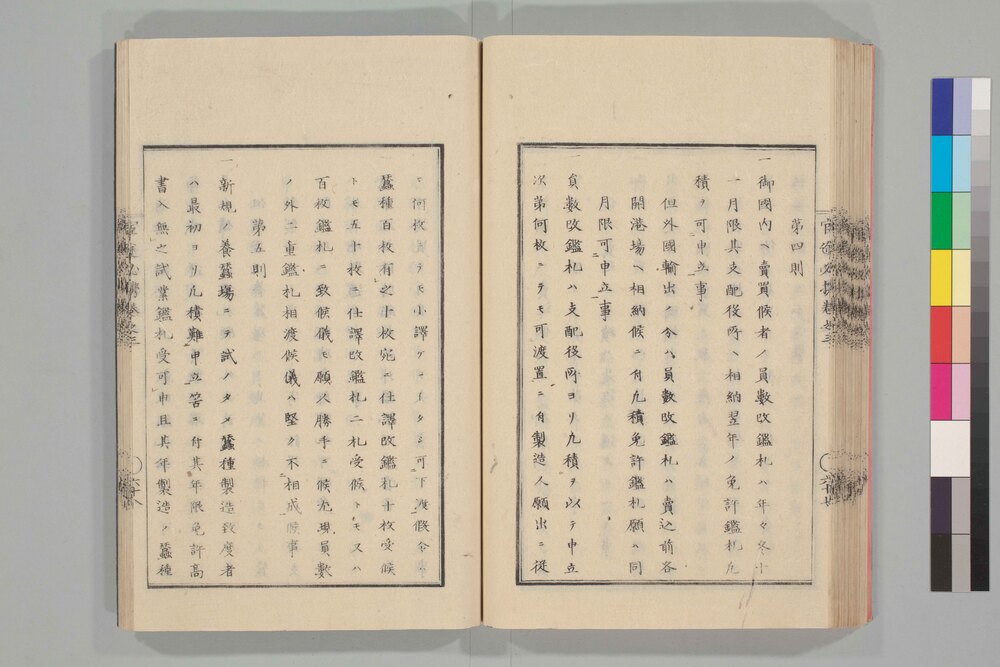 第四則
一御國内ヘ賣買候者ノ員數改鑑札ハ年々冬十
一月限其支配役所ヘ相納翌年ノ免許鑑札凡
積ヲ可申立事
但外國輸出ノ分ハ員數改鑑札ハ賣込前各
開港場ヘ相納候ニ付凡積免許鑑札願ハ同
月限可申立事
一員數改鑑札ハ支配役所ヨリ凡積ヲ以テ申立
次第何枚ニテモ可渡置ニ付製造人願出ニ從
ヒ何枚ニテモ小譯ケニイタシ可下渡假令ハ
蠶種百枚有之十枚宛ニ仕譯改鑑札十枚受候
トモ五十枚ニ仕譯改鑑札二札受候トモ又ハ
百枚鑑札ニ致候儀モ願人勝手ニ候尤現員數
ノ外二重鑑札相渡候儀ハ堅ク不相成候事
第五則
一新規ノ養蠶場ニテ試ノタメ蠶種製造致度者
ハ最初ヨリ凡積難申立筈ニ付其年限免許高
書入無之試業鑑札受可申且其年製造ノ蠶種